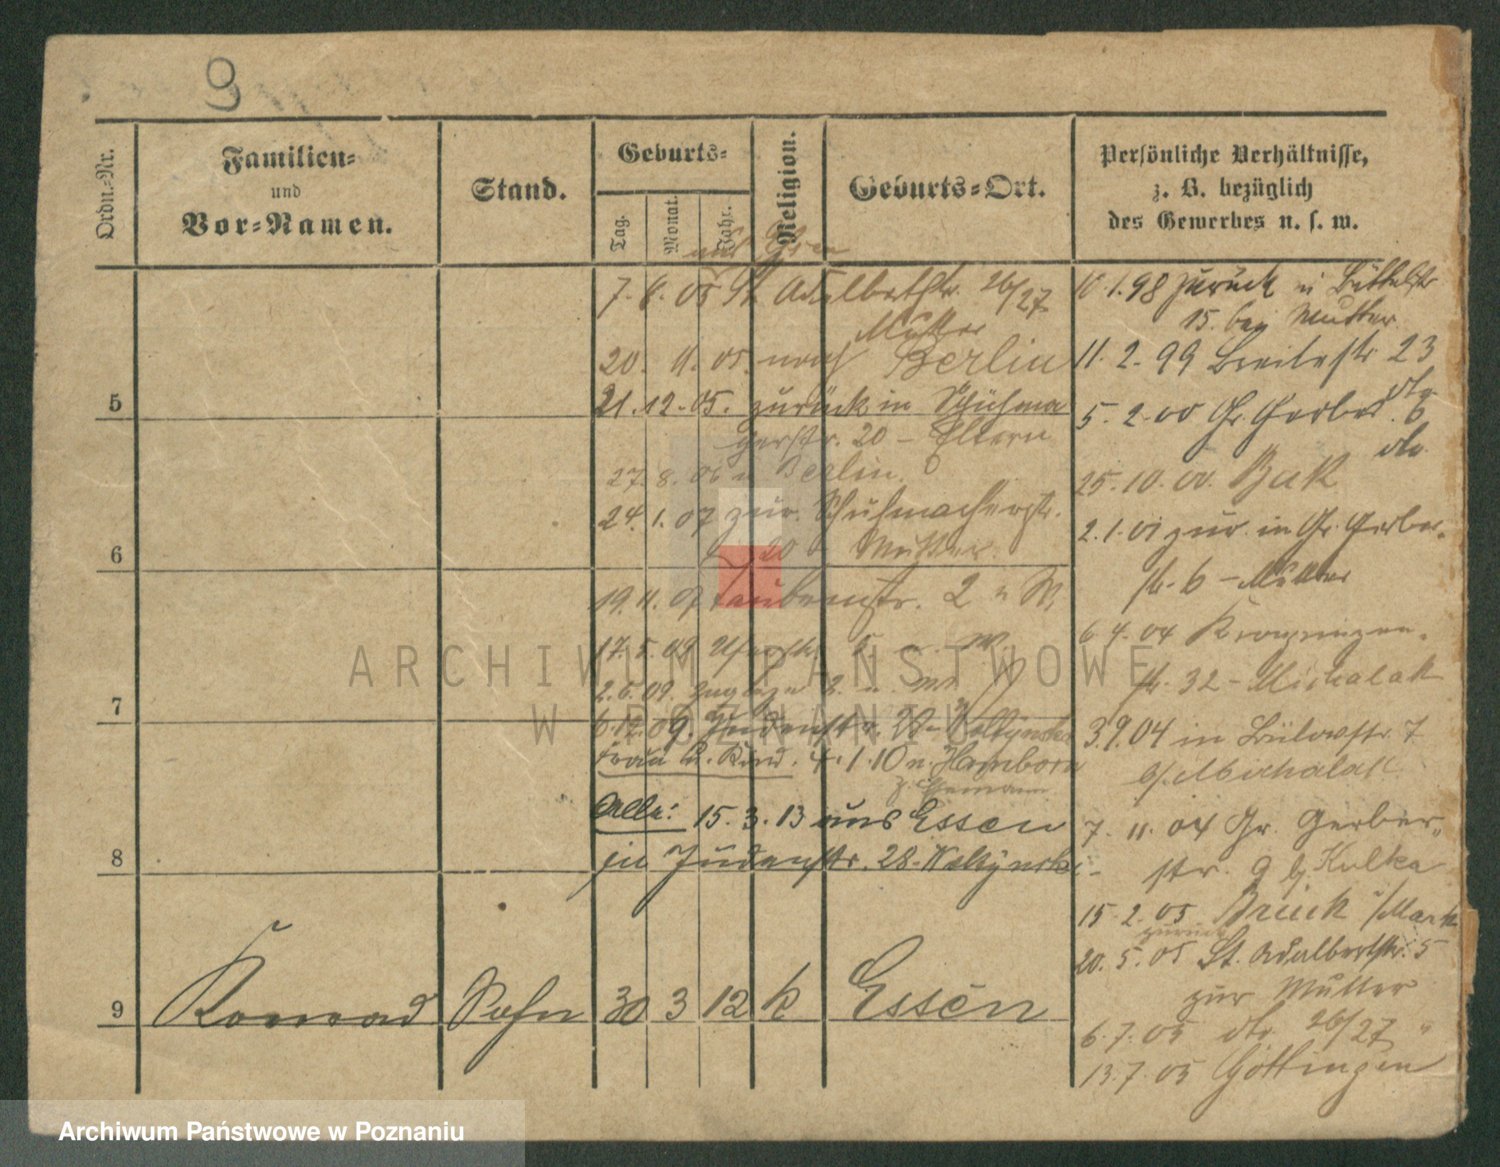 9
Ordn.-Nr.
Familien-
und
Vor-Namen.
Stand.
Geburts-
Tag.
Monat.
Jahr.
Religion.
Geburts-Ort.
Persönliche Verhältnisse,
z. B. bezüglich
des Gewerbes u. s. w.
7. 6. 05 St. Adalbertstr. 26/27
Mutter
20. 11. 05. nach Berlin
21. 12. 05. zurück in Schuhma
cherstr. 20 - Eltern
27. 8. 06 n Berlin.
24. 1. 07 zur. Schuhmacherstr.
20 - Mutter.
19. 11. 07 Taubenstr. 2 n W.
17. 5. 09
2. 6. 09.
6 12. 09. Judenstr. 28
Frau u. Kind. 4. 1. 10 n. Homborn
z. Ehemann
Alle: 15. 3. 13 aus Essen
in Judenstr. 28-
5
6
7
8
9 Konrad Sohn 30 3 12 k Essen
10. 1. 98 zurück in Büttelstr
15. bei Mutter.
11. 2. 99 Breitestr 23
5. 2. 00 Gr. Gerberstr 6
25. 10. 00. Buk
2. 1. 01 zur. in Gr. Gerber-
str. 6 - Mutter
6 4. 04
str. 32 - Michalak
3. 9. 04 in Bülowstr. 7
b/. Michalak
7. 11. 04 Gr. Gerber-
str. 9 bj. Kulka
15. 2. 05 Brück i/Mark
zurück
20. 5. 05 St. Adalbertstr. 5
zur Mutter
6. 7. 05 dto. 26/27 "
13. 7. 05 Göttingen
ARCHIWUM PAŃSTWOWE
W POZNANIU
Archiwum Państwowe w Poznaniu